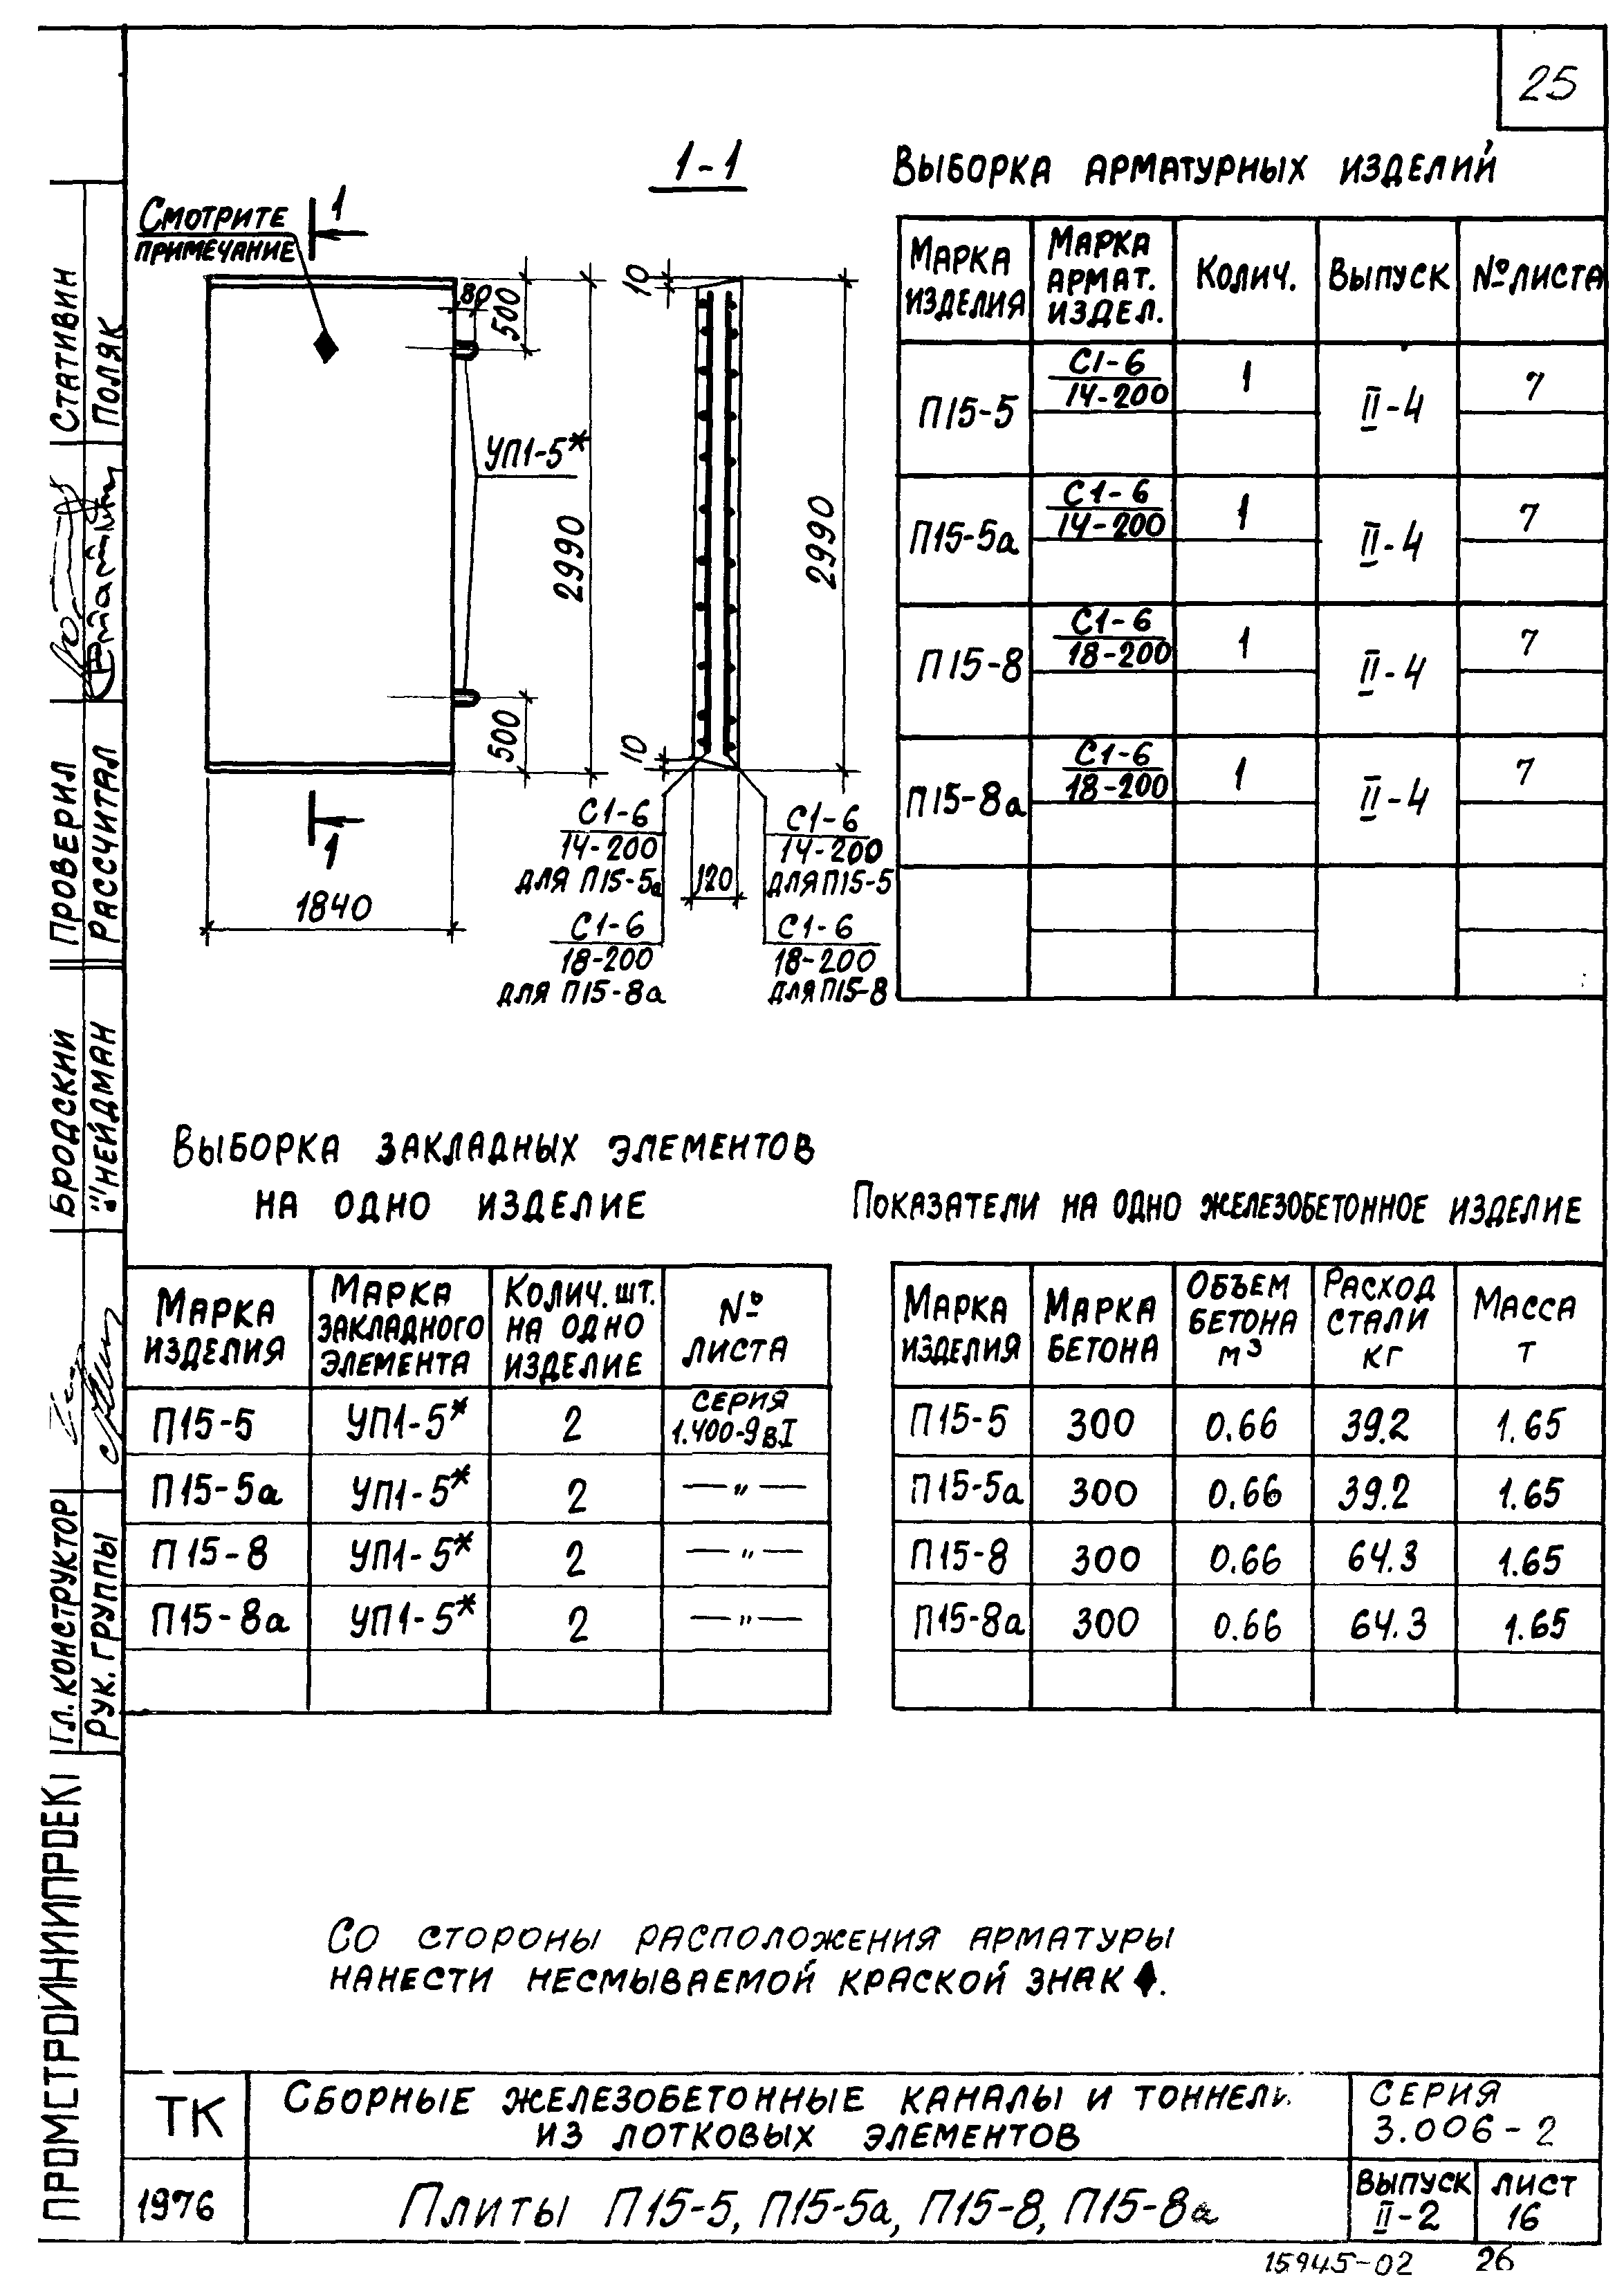 25
Смотрите
примечание
1
1-1
80
500
2990
10
УП1-5*
2990
500
10
1
1840
120
С1-6
14-200
для П15-5а
С1-6
18-200
для П15-8а
С1-6
14-200
для П15-5
С1-6
18-200
для П15-8
Выборка арматурных изделий
Марка изделия Марка армат. издел. Колич. Выпуск № листа
П15-5 С1-6/14-200 1 II-4 7
П15-5а С1-6/14-200 1 II-4 7
П15-8 С1-6/18-200 1 II-4 7
П15-8а С1-6/18-200 1 II-4 7
Выборка закладных элементов
на одно изделие
Марка изделия Марка закладного элемента Колич. шт. на одно изделие № листа
П15-5 УП1-5* 2 серия 1.400-9 в.I
П15-5а УП1-5* 2 —"—
П15-8 УП1-5* 2 —"—
П15-8а УП1-5* 2 —"—
Показатели на одно железобетонное изделие
Марка изделия Марка бетона Объем бетона м³ Расход стали кг Масса т
П15-5 300 0.66 39.2 1.65
П15-5а 300 0.66 39.2 1.65
П15-8 300 0.66 64.3 1.65
П15-8а 300 0.66 64.3 1.65
Со стороны расположения арматуры
нанести несмываемой краской знак ♦.
ТК
1976
Сборные железобетонные каналы и тоннели
из лотковых элементов
Плиты П15-5, П15-5а, П15-8, П15-8а
серия
3.006-2
выпуск
II-2
лист
16
15945-02 26
Промстройниипроект
Гл. конструктор Бродский
Рук. группы Нейдман
Проверил Стативин
Рассчитал Поляк